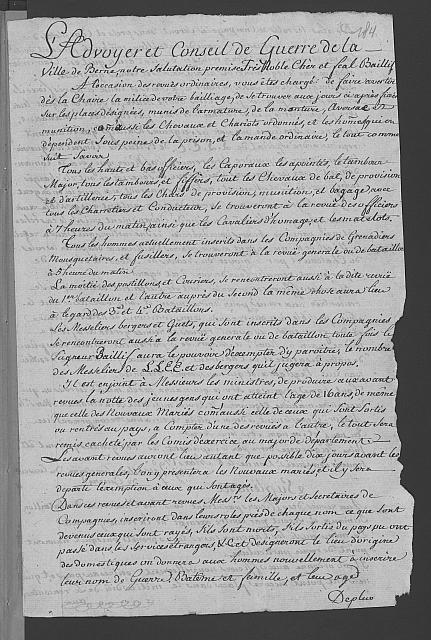 184
L'Advoyer et Conseil de Guerre de la
Ville de Berne, notre Salutation premise Très Noble Cher et feal Baillif
A l'occasion des revües ordinaires, vous êtes chargé de faire avertir
dès la Chaire la milice de votre bailliage, de se trouver aux jours ci après fixés
sur les places désignées, munis de l'armature, de la monture,
munition, comaussi les Chevaux et Chariots ordonnés, et les homes qui en
dépendent sous peine de la prison, et l'amande ordinaire, le tout comme
suit Savoir
Tous les hauts et bas officiers, les Caporaux les apointés, le tambour
Major, tous les tambours et fiffres, tout les Chevaux de bat, de provision
et d'artillerie, tous les Chars de provision, munition, et bagage avec
tous les Charretiers et Conducteur, se trouveront à la revüe des officiers
à 7 heures du matin, ainsi que les Cavaliers d'homage, et les matelots.
Tous les hommes actuellement inscrits dans les Compagnies de Grenadiers
Mousquetaires, et fuseliers, se trouveront à la revüe generale ou de bataillon
à 5 heure du matin
La moitié des postillons et Couriers, se rencontreront aussi à la dite revüe
du 1er bataillon et l'autre aupres du Second la même chose aura lieu
à legard des 3me et 4me Bataillons.
Les Messeliers bergers et Guets, qui sont inscrits dans les Compagnies
se rencontreront aussi à la revüe generale ou de bataillon toute fois le
Seigneur Baillif aura le pouvoir d'exempter d'y paroitre, le nombre
des Messeliers de L.L.E.E. et des bergers quil jugera à propos.
Il est enjoint à Messieurs les ministres, de produire aux avant
revues la notte des jeunes gens qui ont atteint l'age de 16 ans, de même
que celle des Nouveaux Mariés comaussi celle de ceux qui sont sortis
ou rentrés au pays, à compter d'une des revues à l'autre, le tout sera
remis cacheté par les Comis d'exercice au major de departement
Les avant revues auront lieu autant que possible dix jours avant les
revues generales, l'on y presentera les Nouveaux mariés et il y sera
departi l'exemption à ceux qui sont agés.
Dans ces revues et avant revues Mesrs les Majors et Secretaires de
Compagnies, inscriront dans leurs roles près de chaque nom ce que sont
devenus ceux qui sont rayés, s'ils sont morts, s'ils sortis du pays ou ont
passé dans les Services étrangers, &c et designeront le lieu d'origine
des domestiques on donnera aux hommes nouvellement à inscrire
leur nom de Guerre, Batême et famille, et leur age
De plus